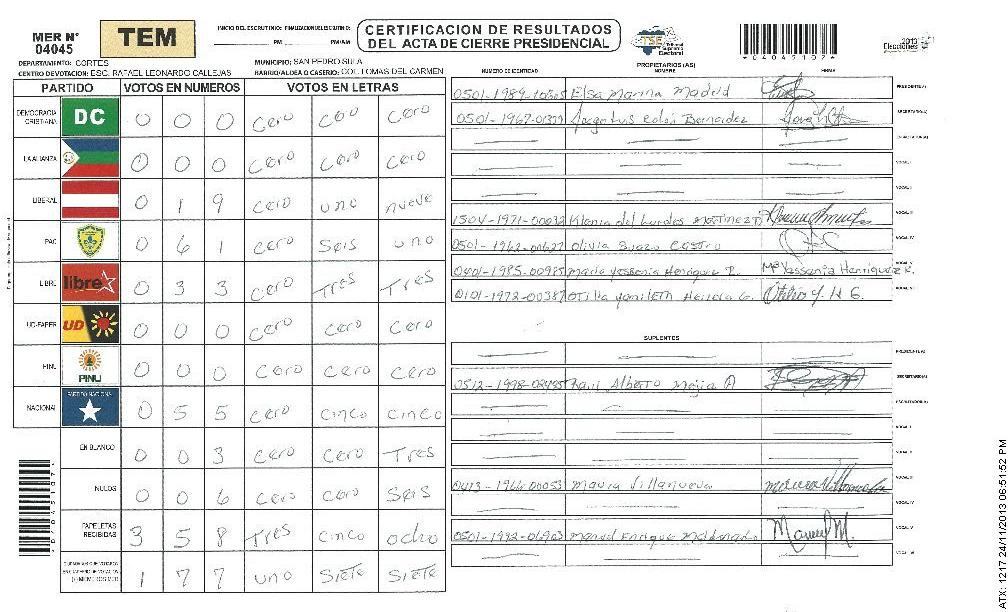 MER N° 04045
TEM
INICIO DEL ESCRUTINIO: FINALIZACION DEL ESCRUTINIO:
PM PM/AM
CERTIFICACION DE RESULTADOS
DEL ACTA DE CIERRE PRESIDENCIAL
TSE Tribunal Supremo Electoral
2013 Elecciones
DEPARTAMENTO: CORTES
MUNICIPIO: SAN PEDRO SULA
CENTRO DE VOTACION: ESC. RAFAEL LEONARDO CALLEJAS
BARRIO/ALDEA O CASERIO: COL. LOMAS DEL CARMEN
PARTIDO VOTOS EN NUMEROS VOTOS EN LETRAS
DEMOCRACIA CRISTIANA DC 0 0 0 cero cero cero
LA ALIANZA 0 0 0 cero cero cero
LIBERAL 0 1 9 cero uno nueve
PAC 0 6 1 cero seis uno
LIBRE libre 0 3 3 cero Tres Tres
UD-FAPER UD 0 0 0 cero cero cero
PINU PINU 0 0 0 cero cero cero
NACIONAL PARTIDO NACIONAL 0 5 5 cero cinco cinco
EN BLANCO 0 0 3 cero cero Tres
NULOS 0 0 6 cero cero Seis
PAPELETAS RECIBIDAS 3 5 8 Tres cinco ocho
1 7 7 uno Siete Siete
PROPIETARIOS (AS)
NUMERO DE IDENTIDAD NOMBRE FIRMA
Elsa Marina Madrid PRESIDENTE(A)
Bernardez SECRETARIO(A)
ESCRUTADOR(A)
VOCAL I
VOCAL II
1504-1971-00032 del Lurdes Martinez VOCAL III
0501-1962-00627 Olivia Castro VOCAL IV
0401-1985-00985 Maria Yessenia Henriquez R. Mª Yassenia Henriquez R. VOCAL V
0101-1972-00387 Otilia Yamileth Herrera G. Otilia Y. H G. VOCAL VI
SUPLENTES
PRESIDENTE(A)
0512-1998-02495 Raul Alberto Mejia A SECRETARIO(A)
ESCRUTADOR(A)
VOCAL I
VOCAL II
0413-1966-00053 Maura Villanueva VOCAL III
VOCAL IV
0501-1992-01903 Manuel Enrique Maldonado Manuel M. VOCAL V
VOCAL VI
ATX: 1217 24/11/2013 06:51:52 PM